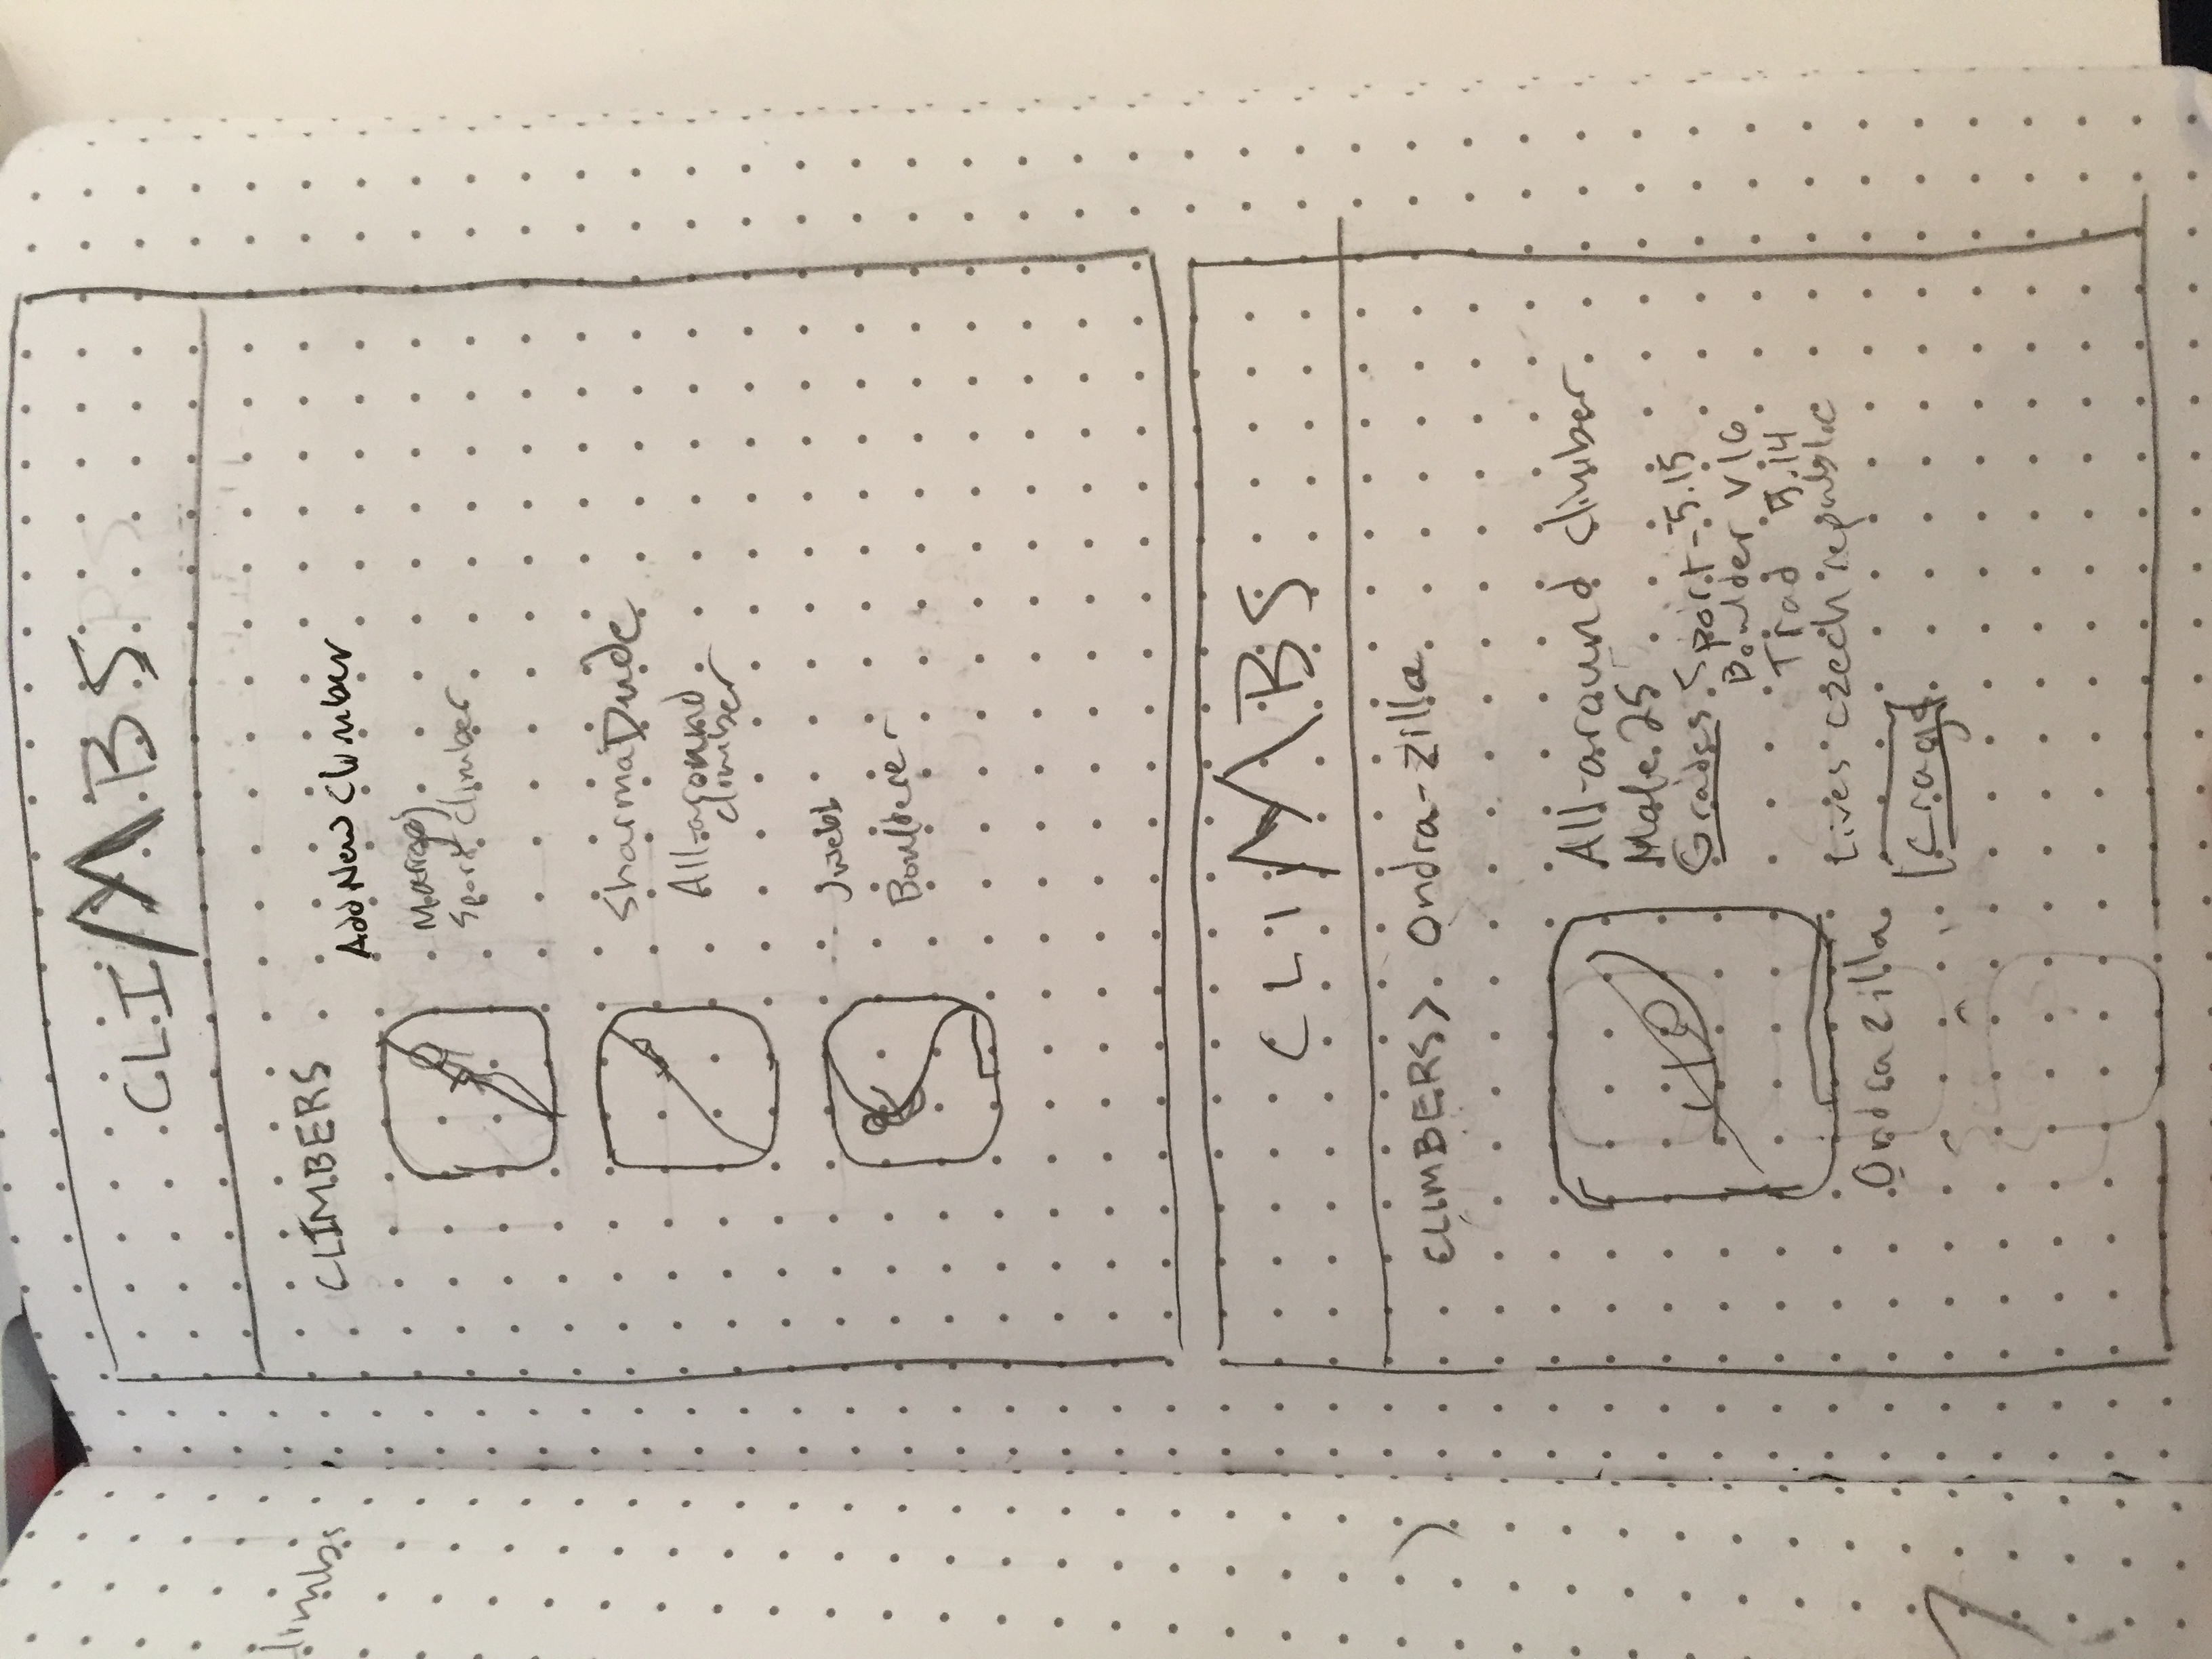 limbs
CLIMBS
CLIMBERS
Add New Climber
Sport climber
SharmaDude
All-around
climber
Jwebb
Boulderer
CLIMBS
CLIMBERS> Ondra-zilla
All-around climber
Male 25
Grades Sport - 5.15
Boulder V16
Trad 5.14
Lives Czech republic
Ondrazilla
Crags